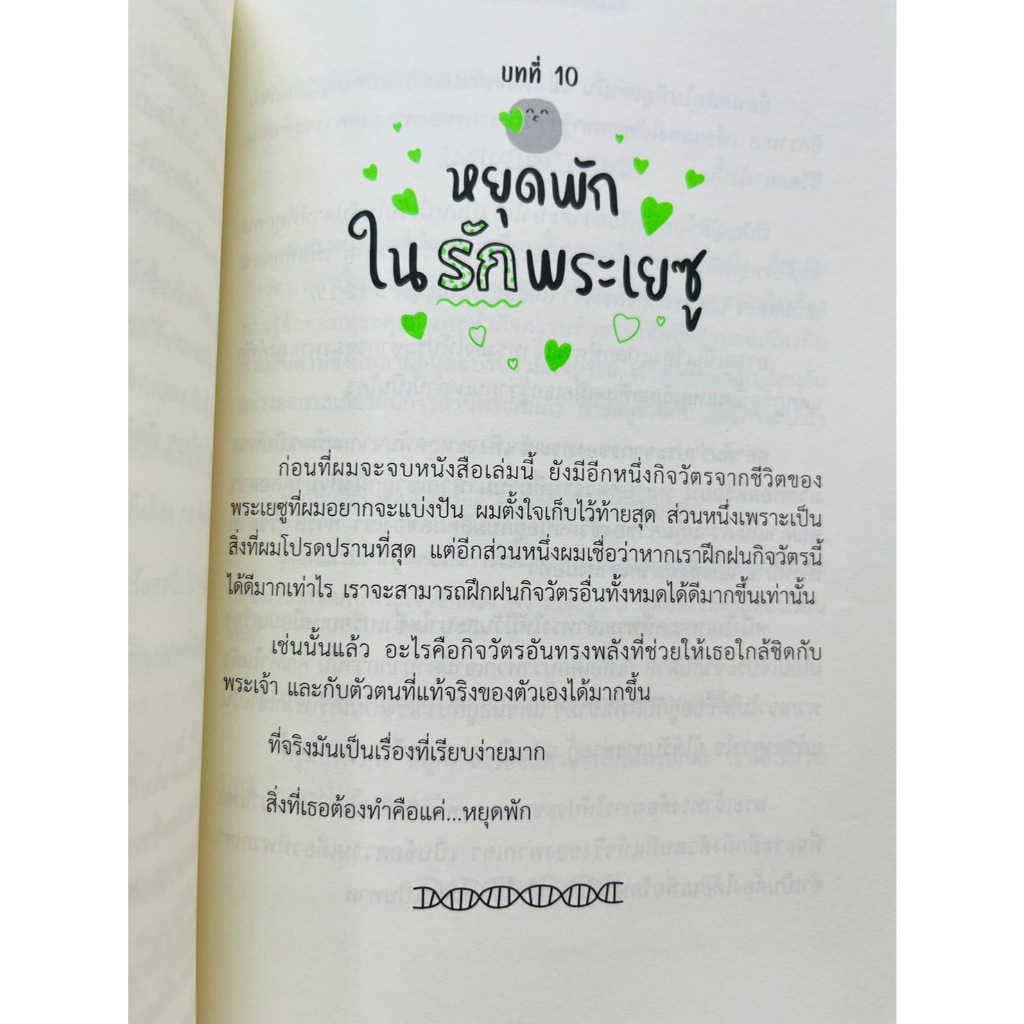 บทที่ 10
หยุดพัก
ในรักพระเยซู
ก่อนที่ผมจะจบหนังสือเล่มนี้ ยังมีอีกหนึ่งกิจวัตรจากชีวิตของ
พระเยซูที่ผมอยากจะแบ่งปัน ผมตั้งใจเก็บไว้ท้ายสุด ส่วนหนึ่งเพราะเป็น
สิ่งที่ผมโปรดปรานที่สุด แต่อีกส่วนหนึ่งผมเชื่อว่าหากเราฝึกฝนกิจวัตรนี้
ได้ดีมากเท่าไร เราจะสามารถฝึกฝนกิจวัตรอื่นทั้งหมดได้ดีมากขึ้นเท่านั้น
เช่นนั้นแล้ว อะไรคือกิจวัตรอันทรงพลังที่ช่วยให้เธอใกล้ชิดกับ
พระเจ้า และกับตัวตนที่แท้จริงของตัวเองได้มากขึ้น
ที่จริงมันเป็นเรื่องที่เรียบง่ายมาก
สิ่งที่เธอต้องทำคือแค่...หยุดพัก